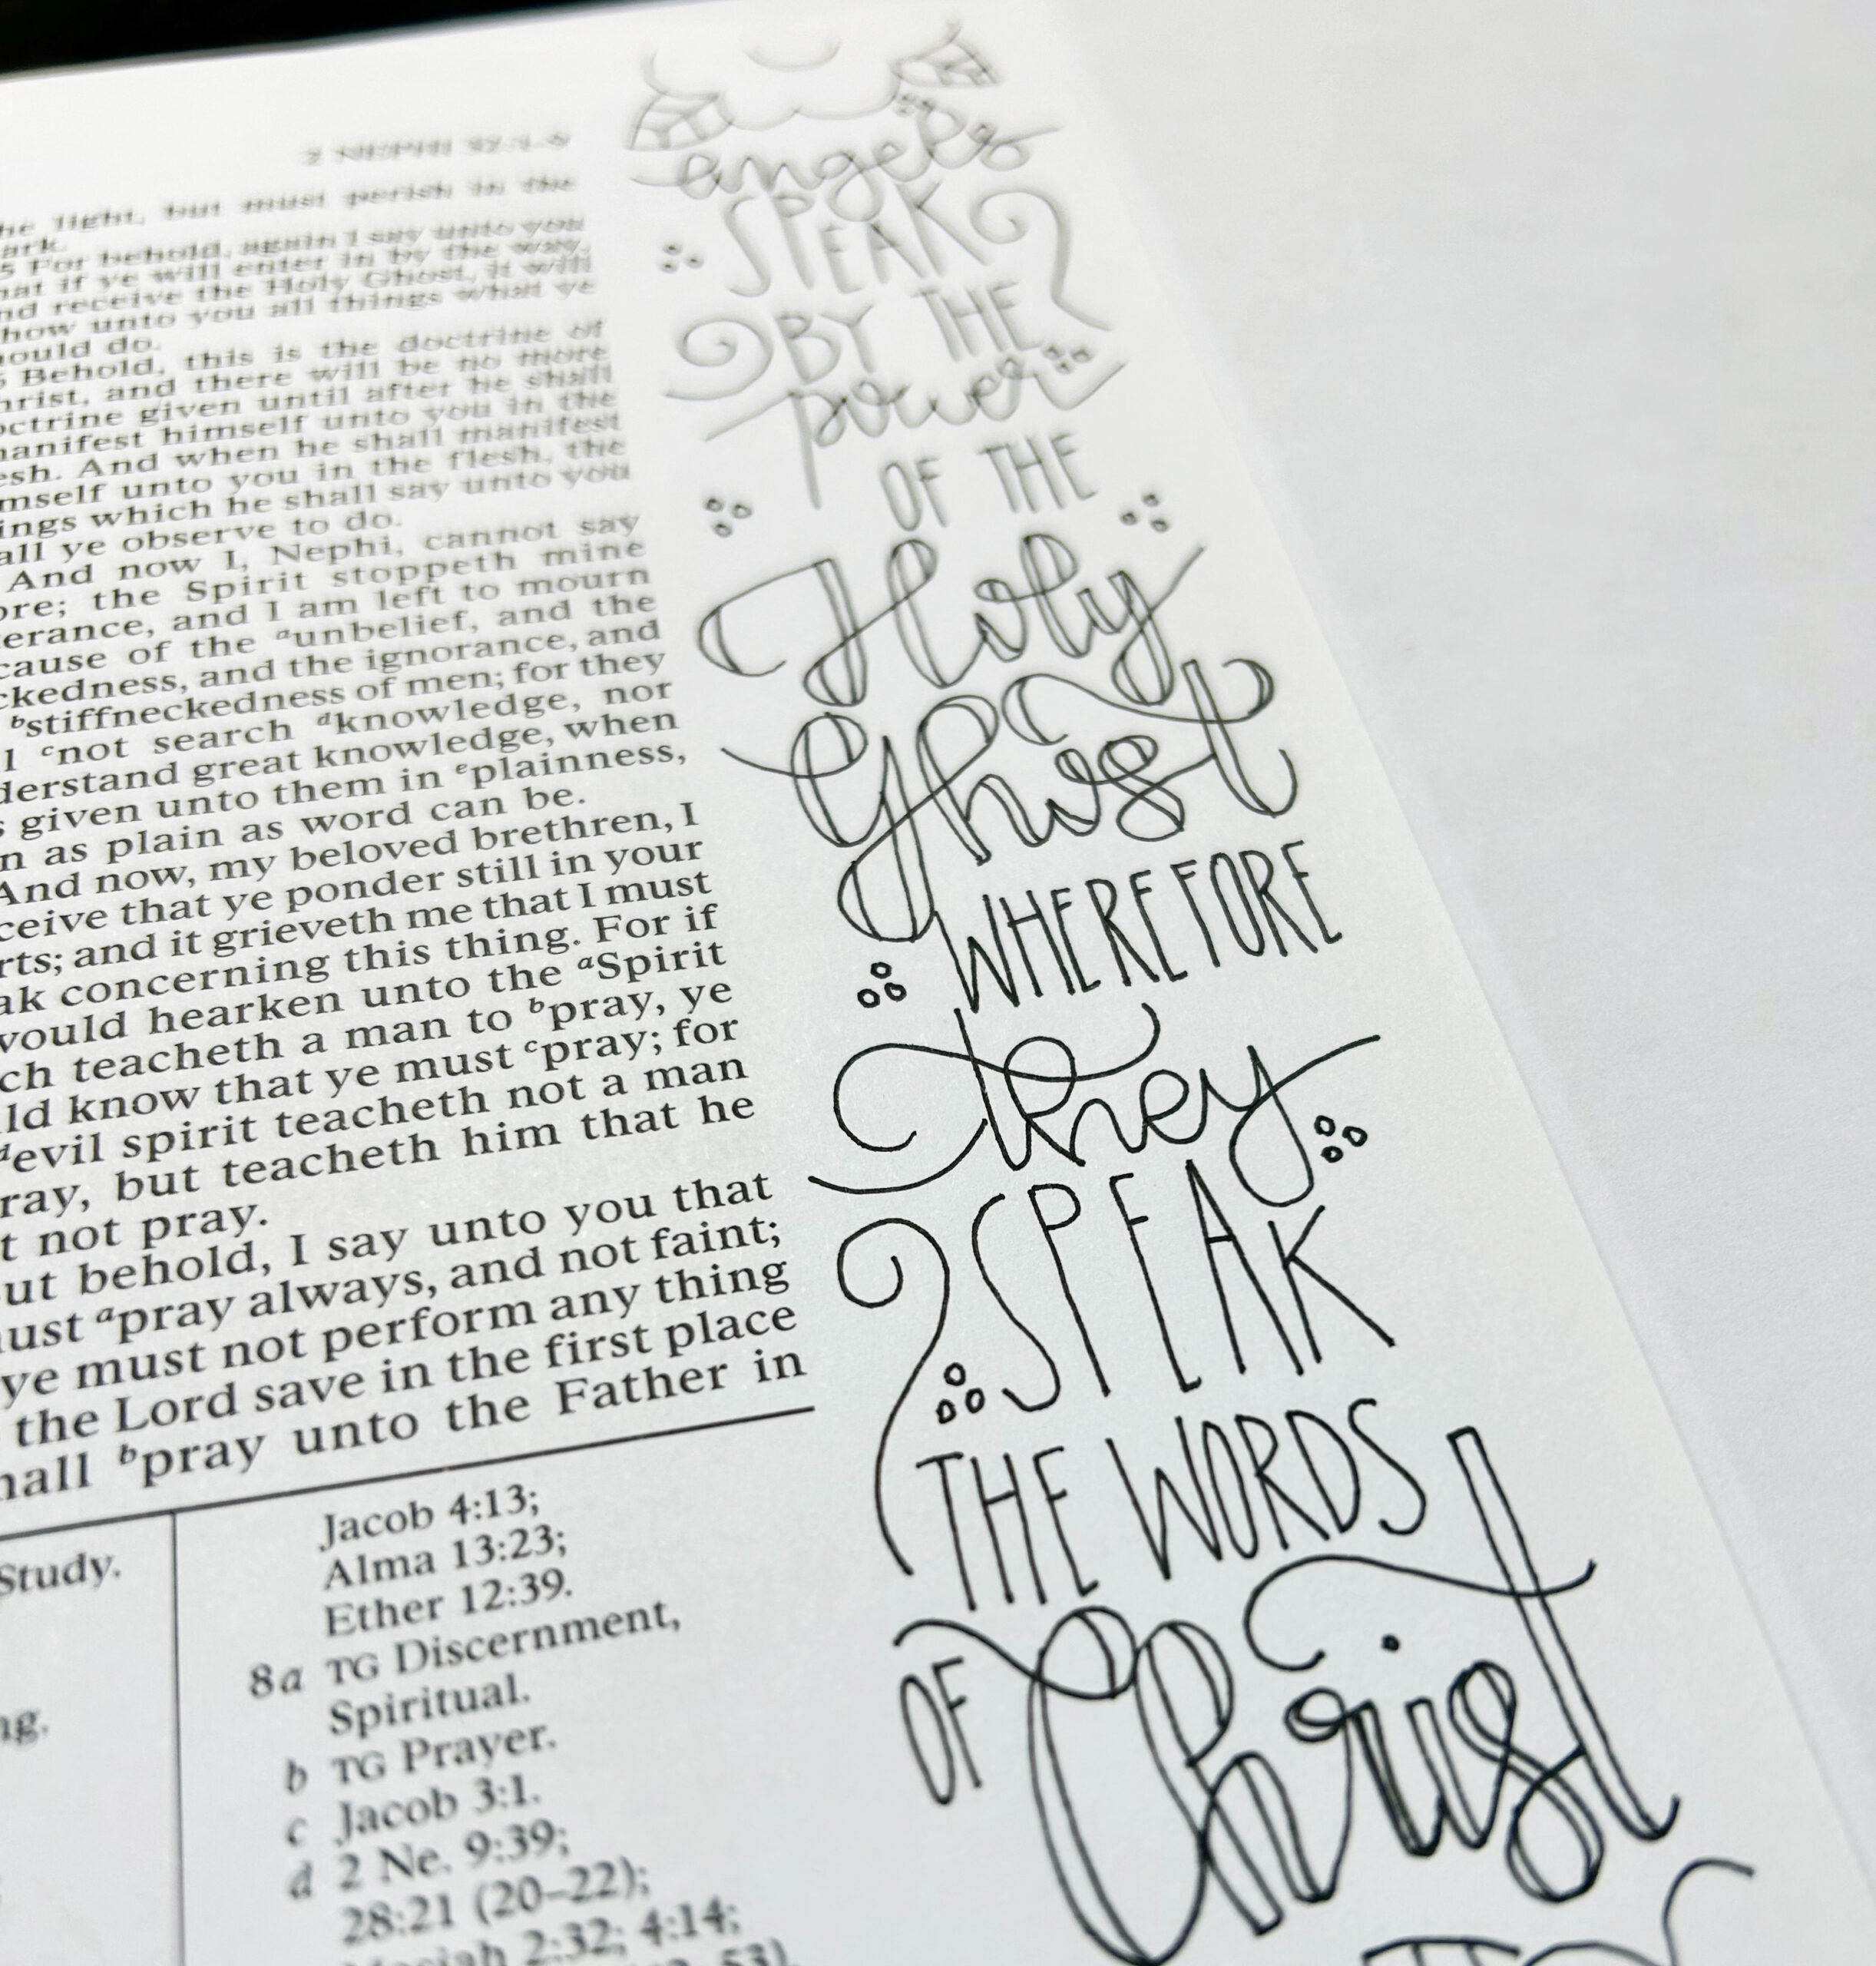 2 NEPHI 32:4–9
he light, but must perish in the
ark.
5 For behold, again I say unto you
hat if ye will enter in by the way,
nd receive the Holy Ghost, it will
how unto you all things what ye
hould do.
6 Behold, this is the doctrine of
hrist, and there will be no more
octrine given until after he shall
manifest himself unto you in the
esh. And when he shall manifest
mself unto you in the flesh, the
ings which he shall say unto you
all ye observe to do.
And now I, Nephi, cannot say
ore; the Spirit stoppeth mine
terance, and I am left to mourn
cause of the ᵃunbelief, and the
ckedness, and the ignorance, and
ᵇstiffneckedness of men; for they
l ᶜnot search ᵈknowledge, nor
derstand great knowledge, when
s given unto them in ᵉplainness,
n as plain as word can be.
And now, my beloved brethren, I
ceive that ye ponder still in your
rts; and it grieveth me that I must
ak concerning this thing. For if
would hearken unto the ᵃSpirit
ch teacheth a man to ᵇpray, ye
ld know that ye must ᶜpray; for
ᵈevil spirit teacheth not a man
ray, but teacheth him that he
t not pray.
ut behold, I say unto you that
ust ᵃpray always, and not faint;
ye must not perform any thing
the Lord save in the first place
hall ᵇpray unto the Father in
Study.
ng.
Jacob 4:13;
Alma 13:23;
Ether 12:39.
8a TG Discernment,
Spiritual.
b TG Prayer.
c Jacob 3:1.
d 2 Ne. 9:39;
28:21 (20–22);
Mosiah 2:32; 4:14;
angels
SPEAK
BY THE
power
OF THE
Holy
Ghost
WHEREFORE
they
SPEAK
THE WORDS
OF Christ